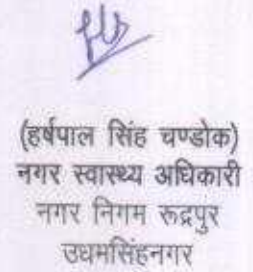 (हर्षपाल सिंह चण्डोक)
नगर स्वास्थ्य अधिकारी
नगर निगम रूद्रपुर
उधमसिंहनगर